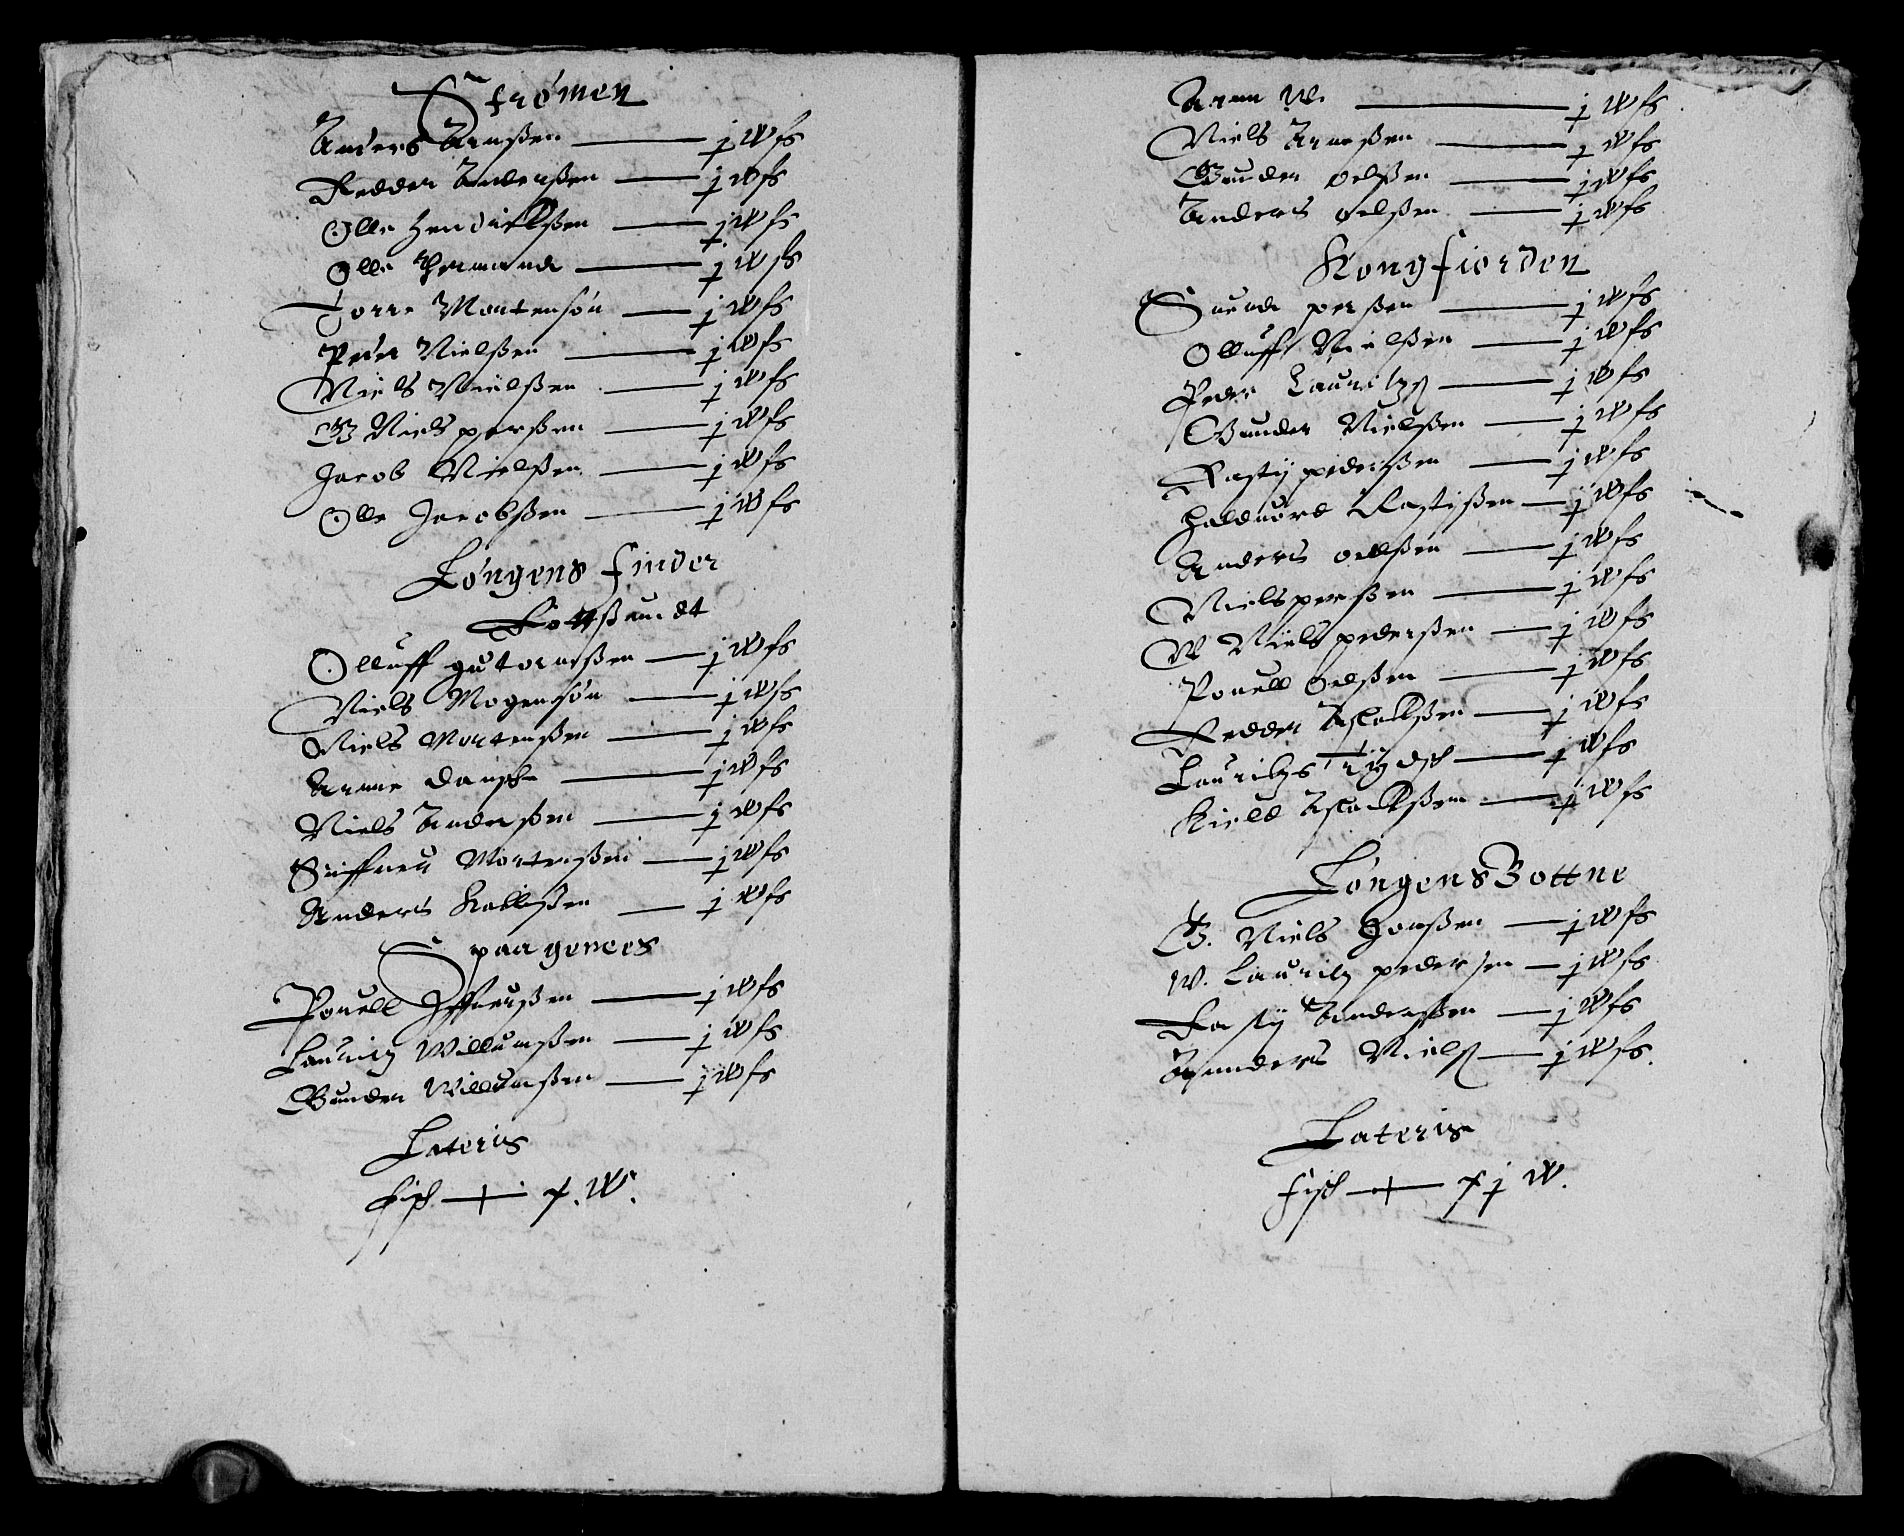 Strømen
Anders Arnßen — j W fs
Redder Anderßen — j W fs
Olle Hendrickßen — j W fs
Olle Hermandt — j W fs
Torre Mortensøn — j W fs
Peder Nielßen — j W fs
Niels Nielßen — j W fs
G Niels perßen — j W fs
Jacob Nielßen — j W fs
Olle Jacobßen — j W fs
Løngens finder
Rottßundt
Olluff gutormßen — j W fs
Niels Mogensøn — j W fs
Niels Mortenßen — j W fs
Arnne Danske — j W fs
Niels Anderßen — j W fs
Siffuer Mortenßen — j W fs
Anders Kolbißen — j W fs
Spaagenees
Pouell Iffuerßen — j W fs
Lauritz Willumßen — j W fs
Gunder Willumßen — j W fs
Lateris
fisch — x. W.
Arnn W. — j W fs
Niels Arneßen — j W fs
Gunder oelßen — j W fs
Anders oelßen — j W fs
Kongfiorden
Suend perßen — j W fs
Olluff Nielßen — j W fs
Peder Lauritzß — j W fs
Gunder Nielßen — j W fs
Rastij pederßen — j W fs
Halduord Rastißen — j W fs
Anders oellßen — j W fs
Niels perßen — j W fs
W Niels pederßen — j W fs
Pouell Oelßen — j W fs
Redder Aslackßen — j W fs
Lauritzs Tydsch — j W fs
Kield Aslackßen — j W fs
Løngens Bottne
G. Niels Jonßen — j W fs
W. Lauritz pedersen — j W fs
Rastij Anderßen — j W fs
Annders Nielß — j W fs.
Lateris
fisch — xj W.